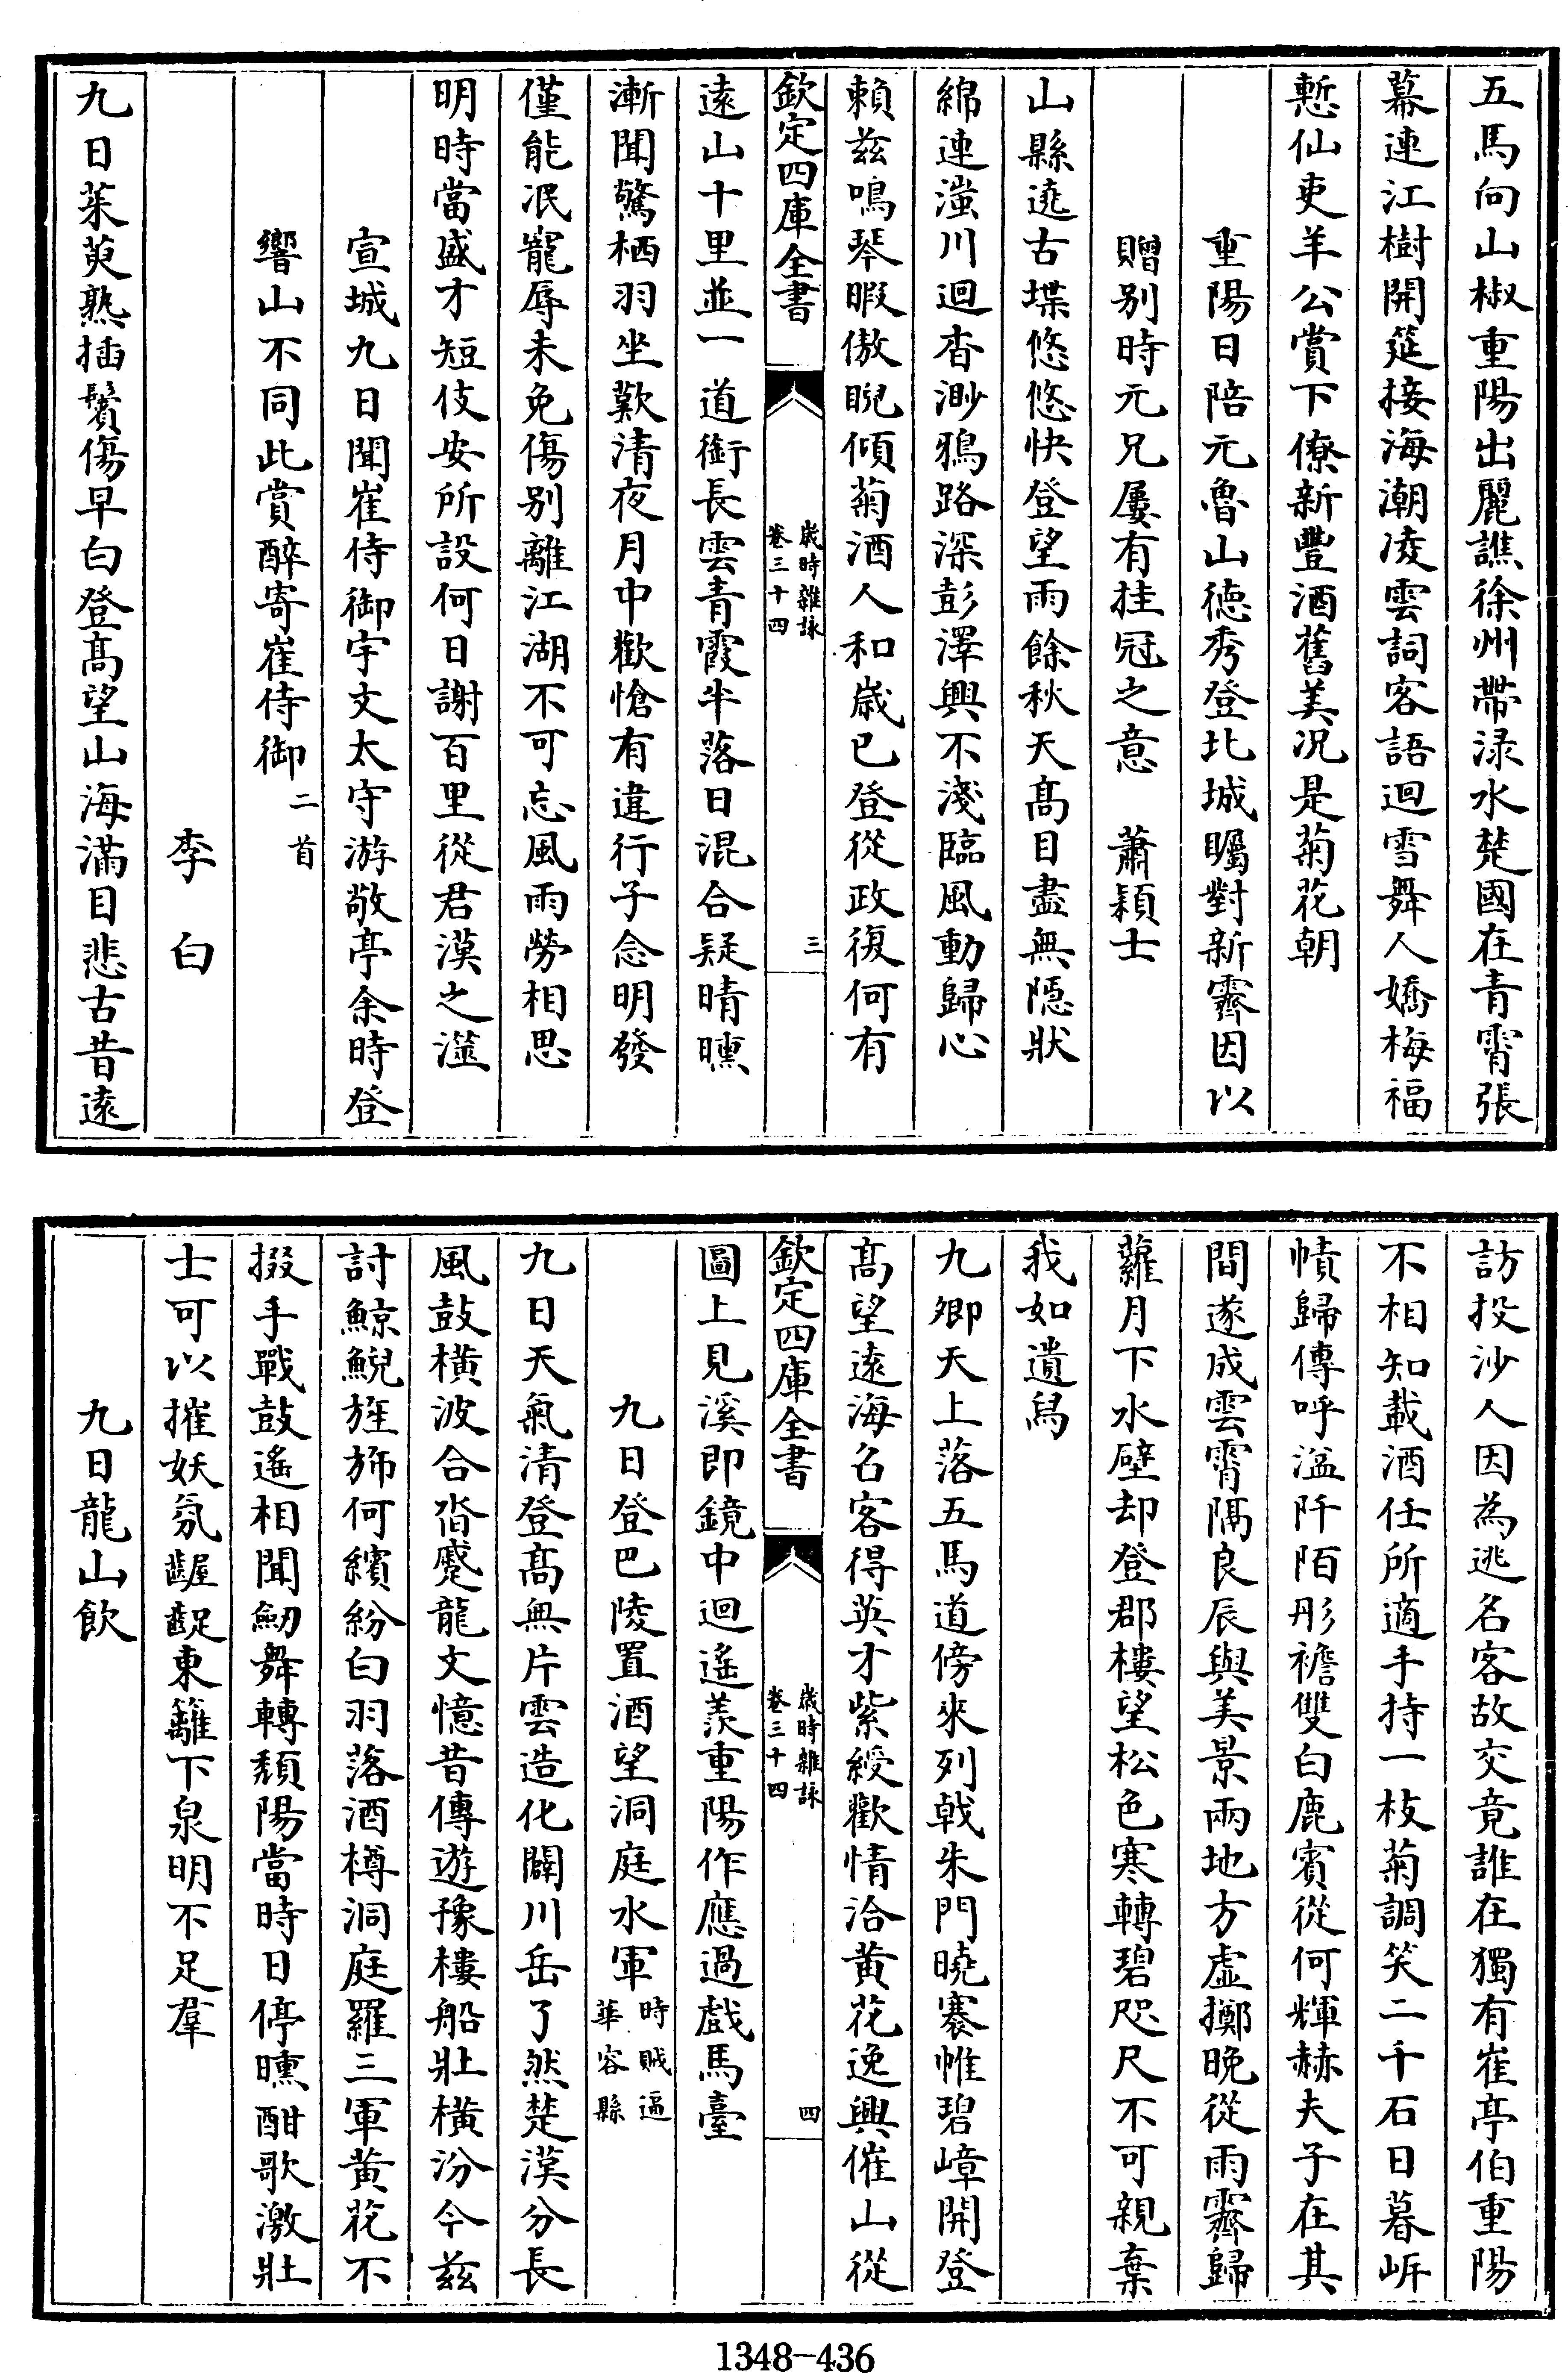 五馬向山椒重陽出麗譙徐州帶淥水楚國在青霄張
幕連江樹開筵接海潮凌雲詞客語迴雪舞人嬌梅福
慙仙吏羊公賞下僚新豐酒舊美况是菊花朝
重陽日陪元魯山徳秀登北城矚對新霽因以
贈别時元兄屢有挂冠之意　蕭穎士
山縣遶古堞悠悠快登望雨餘秋天髙目盡無隠狀
綿連滍川迴杳渺鴉路深彭澤興不淺臨風動歸心
頼兹鳴琴暇傲睨傾菊酒人和歳已登從政復何有
欽定四庫全書
歳時雜詠
卷三十四
三
遠山十里並一道銜長雲青霞半落日混合疑晴曛
漸聞驚栖羽坐歎清夜月中歡愴有違行子念明發
僅能泯寵辱未免傷别離江湖不可忘風雨勞相思
明時當盛才短伎安所設何日謝百里從君漢之澨
宣城九日聞崔侍御宇文太守游敬亭余時登
響山不同此賞醉寄崔侍御二首
李白
九日茱萸熟插鬢傷早白登髙望山海滿目悲古昔遠
訪投沙人因為逃名客故交竟誰在獨有崔亭伯重陽
不相知載酒任所適手持一枝菊調笑二千石日暮㟁
幘歸傳呼溢阡陌彤襜雙白鹿賓從何輝赫夫子在其
間遂成雲霄隔良辰與美景兩地方虚擲晩從雨霽歸
蘿月下水壁却登郡樓望松色寒轉碧咫尺不可親棄
我如遺舄
九卿天上落五馬道傍來列戟朱門曉褰帷碧嶂開登
髙望遠海名客得英才紫綬歡情洽黄花逸興催山從
欽定四庫全書
歳時雜詠
卷三十四
四
圖上見溪即鏡中迴遥羨重陽作應過戲馬臺
九日登巴陵置酒望洞庭水軍時賊逼華容縣
九日天氣清登髙無片雲造化闢川岳了然楚漢分長
風鼓橫波合沓蹙龍文憶昔傳遊豫樓船壯橫汾今兹
討鯨鯢旌斾何繽紛白羽落酒樽洞庭羅三軍黄花不
掇手戰鼓遥相聞劒舞轉頽陽當時日停曛酣歌激壯
士可以摧妖氛齷齪東籬下泉明不足羣
九日龍山飲
1348-436